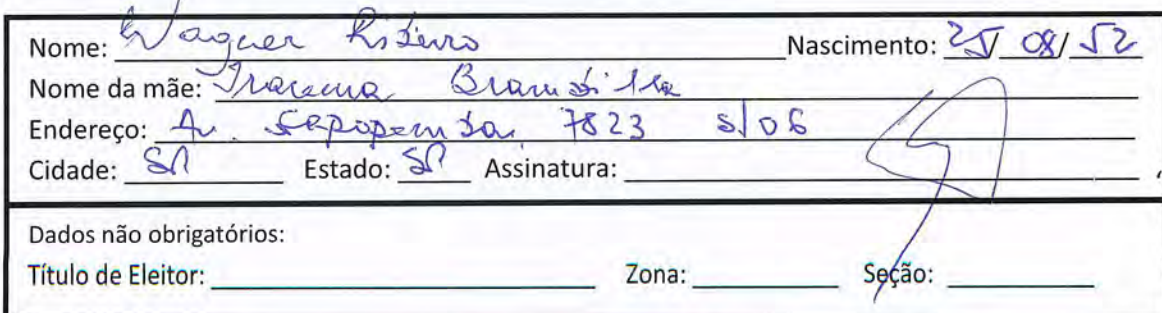 Nome: Wagner Ribeiro Nascimento: 25/08/52
Nome da mãe: Iracema Brambilla
Endereço: Av. Sapopemba 7823 s/06
Cidade: SP Estado: SP Assinatura:
Dados não obrigatórios:
Título de Eleitor: Zona: Seção: